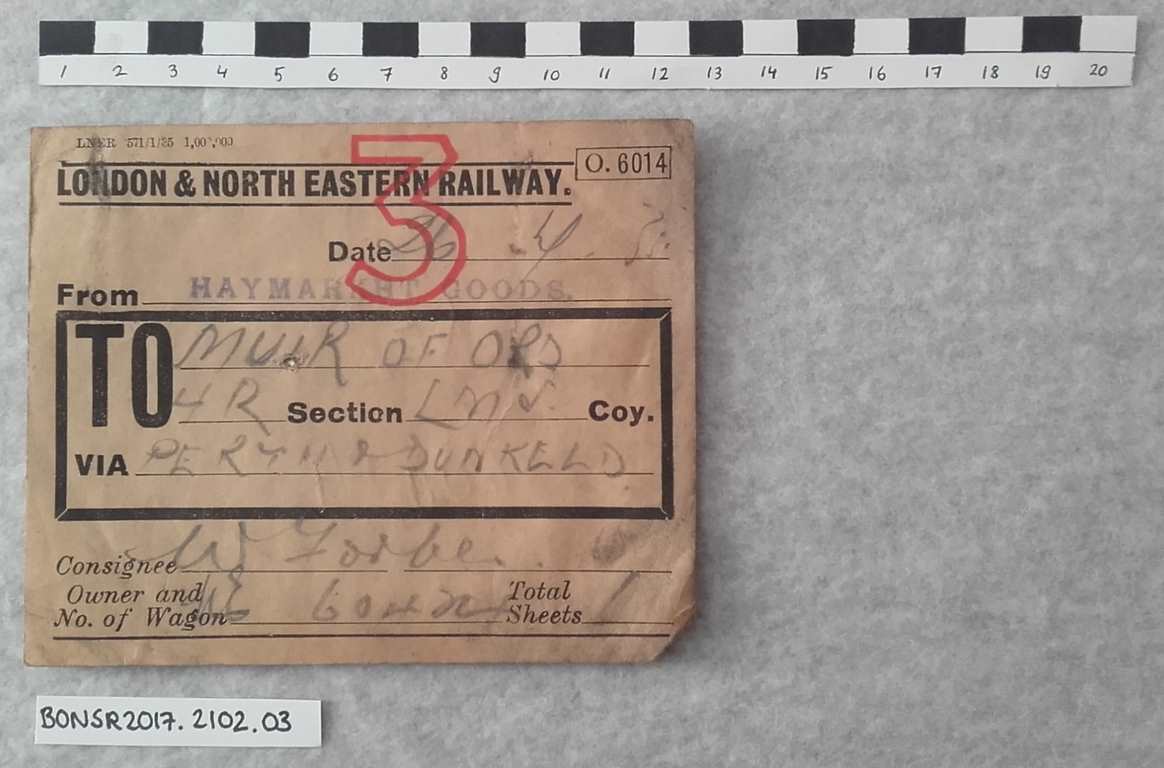 1 2 3 4 5 6 7 8 9 10 11 12 13 14 15 16 17 18 19 20
LNER 571/1/35 1,000,000
3
O. 6014
LONDON & NORTH EASTERN RAILWAY.
Date 26. 4.
From HAYMARKET GOODS.
TO MUIR OF ORD
HR Section LMS. Coy.
VIA PERTH & DUNKELD
Consignee W Forbe
Owner and Total
No. of Wagon NE Sheets 1
BONSR2017. 2102.03